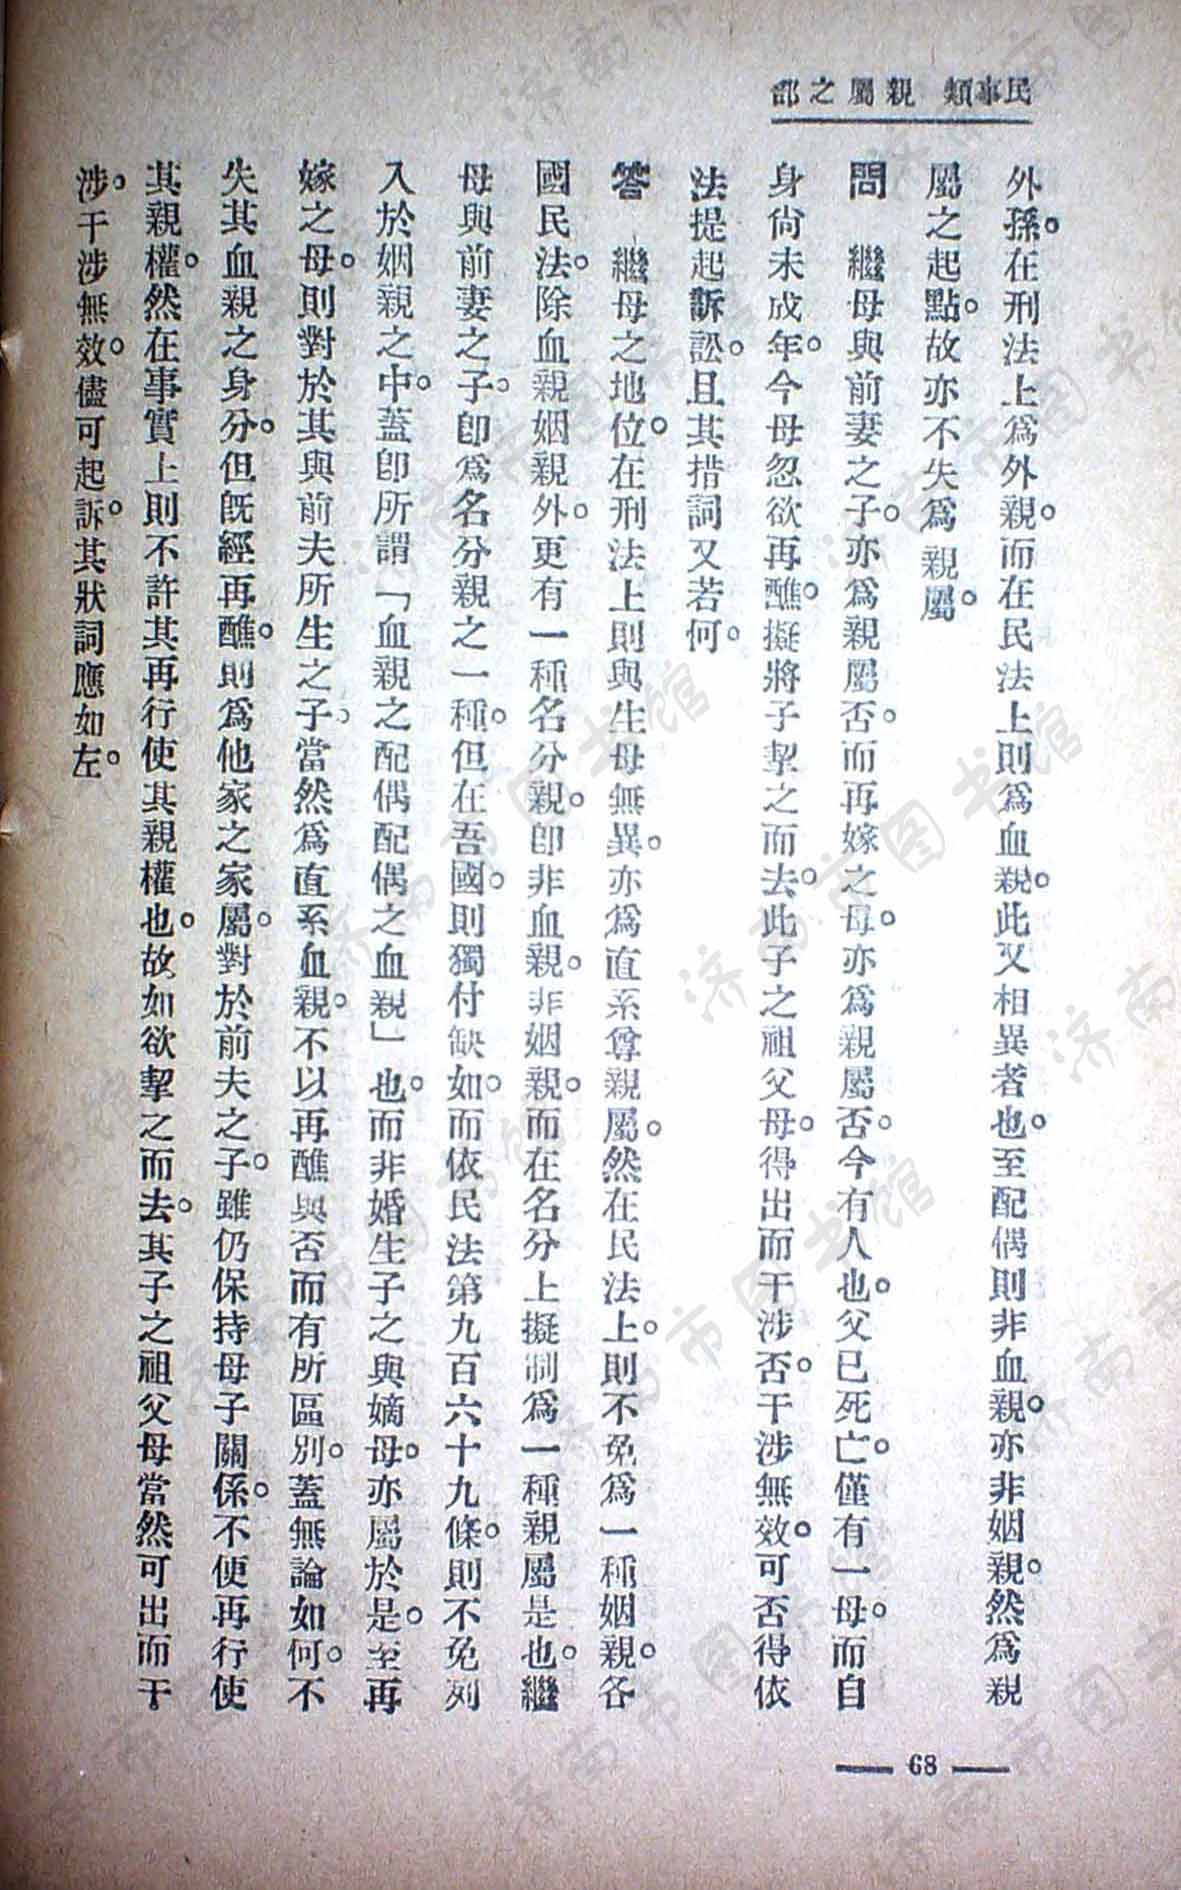 民事類　親屬之部
外孫。在刑法上爲外親。而在民法上則爲血親。此又相異者也。至配偶則非血親。亦非姻親。然爲親
屬之起點。故亦不失爲親屬。
問　繼母與前妻之子。亦爲親屬否。而再嫁之母。亦爲親屬否。今有人也。父已死亡。僅有一母。而自
身尙未成年。今母忽欲再醮。擬將子挈之而去。此子之祖父母。得出而干涉否。干涉無效。可否得依
法提起訴訟。且其措詞又若何。
答　繼母之地位。在刑法上則與生母無異。亦爲直系尊親屬。然在民法上。則不免爲一種姻親。各
國民法。除血親姻親外。更有一種名分親。卽非血親。非姻親。而在名分上擬制爲一種親屬是也。繼
母與前妻之子。卽爲名分親之一種。但在吾國。則獨付缺如。而依民法第九百六十九條。則不免列
入於姻親之中。蓋卽所謂「血親之配偶配偶之血親」也。而非婚生子之與嫡母。亦屬於是。至再
嫁之母。則對於其與前夫所生之子。當然爲直系血親。不以再醮與否而有所區別。蓋無論如何。不
失其血親之身分。但旣經再醮。則爲他家之家屬。對於前夫之子。雖仍保持母子關係。不便再行使
其親權。然在事實上則不許其再行使其親權也。故如欲挈之而去。其子之祖父母當然可出而干
涉。干涉無效。儘可起訴。其狀詞應如左。
68
济南市图书馆